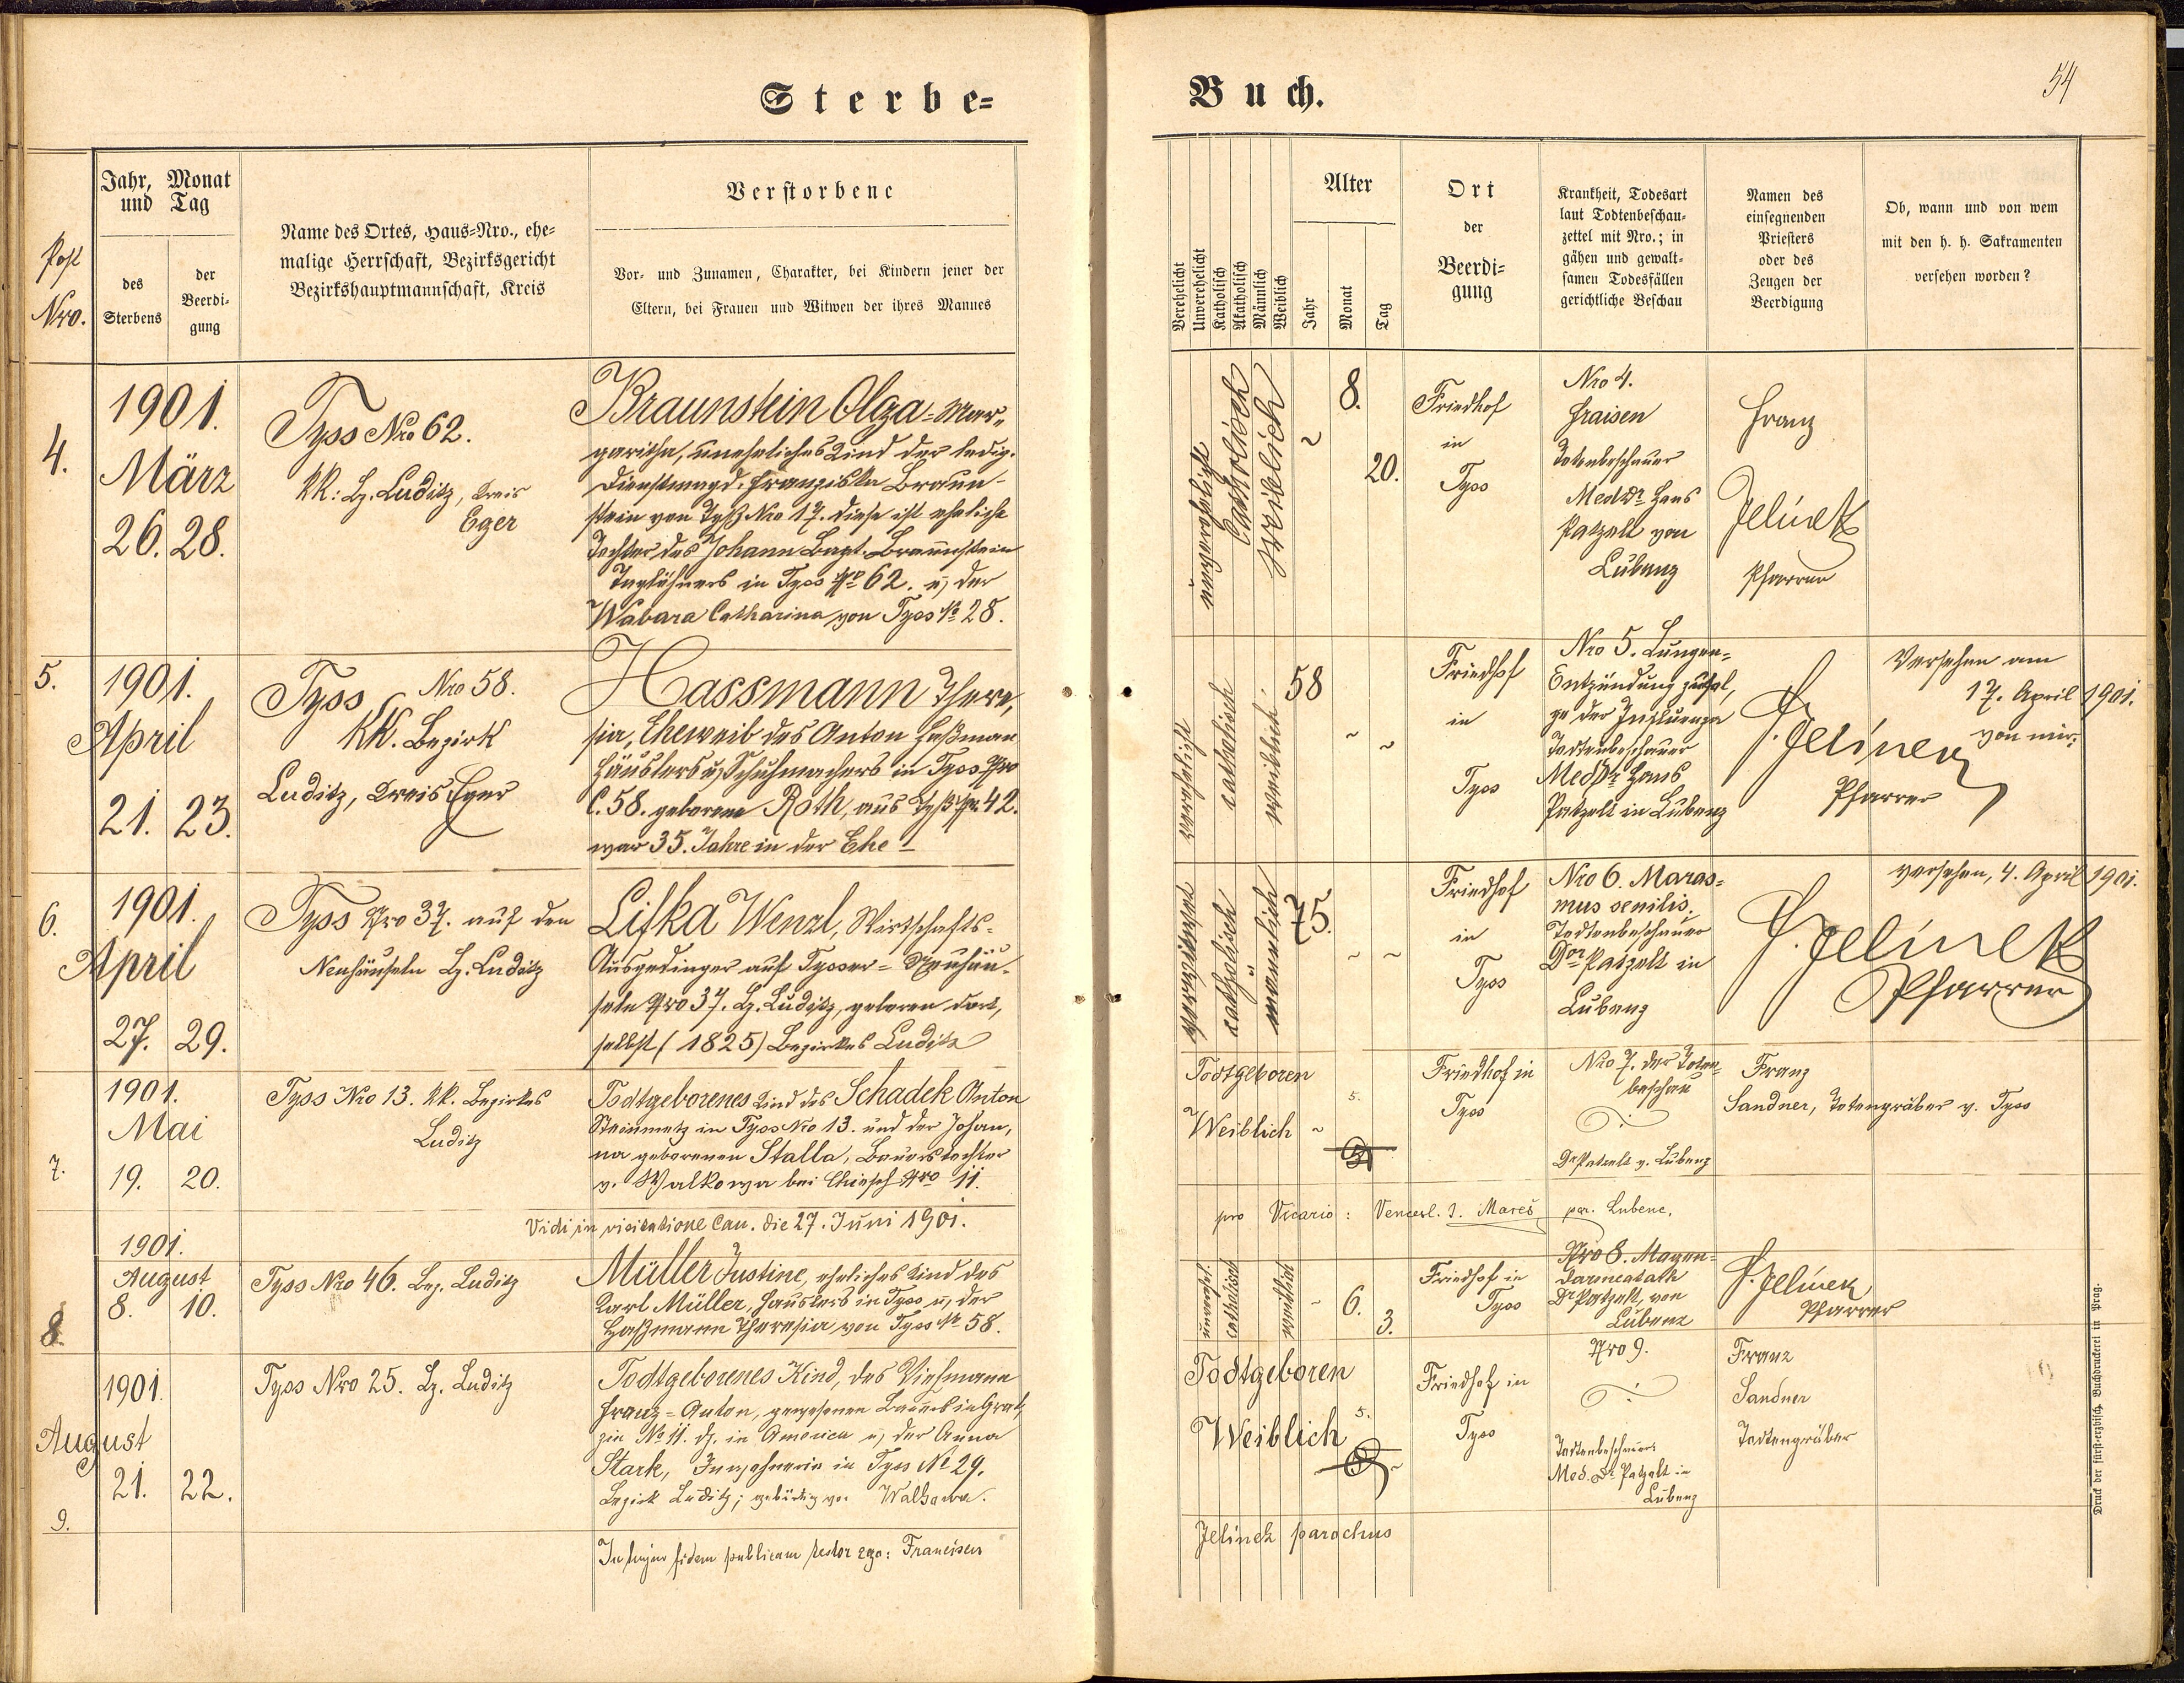 Sterbe=
Jahr, Monat
und Tag
des
Sterbens
der
Beerdi=
gung
Post
Nro.
Name des Ortes, Haus=Nro., ehe=
malige Herrschaft, Bezirksgericht
Bezirkshauptmannschaft, Kreis
Verstorbene
Vor= und Zunamen, Charakter, bei Kindern jener der
Eltern, bei Frauen und Witwen der ihres Mannes
4.
1901.
März
26. 28.
Tyss Nro 62.
kk: Bz. Luditz, Kreis
Eger
Braunstein Olga=Mar„
garitha, uneheliches Kind der ledig.
Dienstmagd. Franziska Braun-
stein von Tyß Nro 17. diese ist eheliche
Tochter des Johann Bapt. Braunstein
Taglöhners in Tyss No 62. u, der
Wabara Catharina von Tyss No 28.
5.
1901.
April
21. 23.
Tyss, Nro 58.
KK. Bezirk
Luditz, Kreis Eger
Hassmann There,
sia, Eheweib des Anton Haßman
Häuslers u, Schuhmachers in Tyss Nro
C. 58. geborene Roth, aus Tyß No 42.
war 35. Jahre in der Ehe
6.
1901.
April
27. 29.
Tyss Nro 37. auf den
Neuhäuseln Bz. Luditz
Lifka Wenzl, Wirtschafts=
Ausgedinger auf Tysser= Neuhäu-
seln Nro 37. Bz. Luditz, geboren dort,
selbst (1825) Bezirkes Luditz
7.
1901.
Mai
19. 20.
Tyss Nro 13. kk. Bezirkes
Luditz
Todtgeborenes Kind des Schadek Anton
Steinmetz in Tyss Nro 13. und der Johan,
na geborenen Stalla, Bauerstochter
v. Walkowa bei Chiesch Nro 11.
Vidi in visitatione Can. die 27. Juni 1901.
8.
1901.
August
8. 10.
Tyss Nro 46. Bez. Luditz
Müller Justine, eheliches Kind des
Karl Müller, Häuslers in Tyss u, der
Haßmann Theresia von Tyss No 58.
9.
1901.
August
21. 22.
Tyss Nro 25. Bz. Luditz
Todtgeborenes Kind, des
Franz=Anton, gewesenen Bauers in
No 11. dz. in America u, der Anna
Stark, Inwohnerin in Tyss No 29.
Bezirk Luditz; gebürtig von Walkowa.
In hujus fidem publicam testor ego: Franciscus
Buch.
54
Verehelicht
Unverehelicht
Katholisch
Akatholisch
Männlich
Weiblich
Alter
Jahr
Monat
Tag
Ort
der
Beerdi=
gung
Krankheit, Todesart
laut Todtenbeschau=
zettel mit Nro.; in
gähen und gewalt=
samen Todesfällen
gerichtliche Beschau
Namen des
einsegnenden
Priesters
oder des
Zeugen der
Beerdigung
Ob, wann und von wem
mit den h. h. Sakramenten
versehen worden?
unverehelicht
Catholisch
weiblich
~
8.
20.
Friedhof
in
Tyss
Nro 4.
Fraisen
Totenbeschauer
MedDr Hans
Patzelt von
Lubenz
Franz
Jelinek
Pfarrer
verehelicht
catholisch
weiblich.
58
~
~
Friedhof
in
Tyss
Nro 5. Lungen=
Entzündung zufol,
ge der Influenza
Todtenbeschauer
MedDr Hans
Patzelt in Lubenz
F. Jelinek
Pfarrer
Versehen am
17. April 1901.
von mir;
verwitwet
catholisch
männlich
75.
~ ~
Friedhof
in
Tyss
Nro 6. Maras=
mus senilis.
Todtenbeschauer
Dor Patzelt in
Lubenz
F. Jelinek
Pfarrer
versehen, 4. April 1901.
Todtgeboren
Weiblich ~
5.
Friedhof in
Tyss
Nro 7. der Toten,
beschau
Dr Patzelt v. Lubenz
Franz
Sandner, Totengräber v. Tyss
pro Vicario: Vencesl. J. Mareš par. Lubenc.
unverehel.
catholisch
weiblich
-
6.
3.
Friedhof in
Tyss
Nro 8. Magen=
darmcatath
Dr Patzelt, von
Lubenz
F. Jelinek
Pfarrer
Todtgeboren
Weiblich
5.
~
Friedhof in
Tyss
Nro 9.
Todtenbeschauer
Med. Dr Patzelt in
Lubenz
Franz
Sandner
Todtengräber
Jelinek parochus
Druck der fürst=erzbisch. Buchdruckerei in Prag.